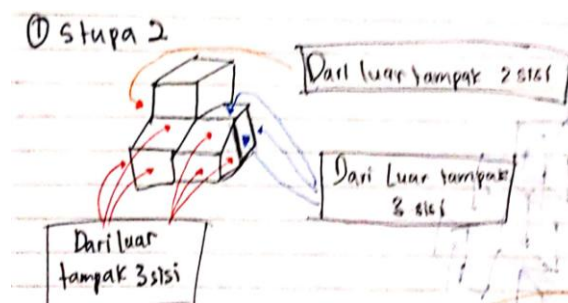 ① Stupa 2
Dari luar tampak 2 sisi
Dari Luar tampak
3 sisi
Dari luar
tampak 3 sisi